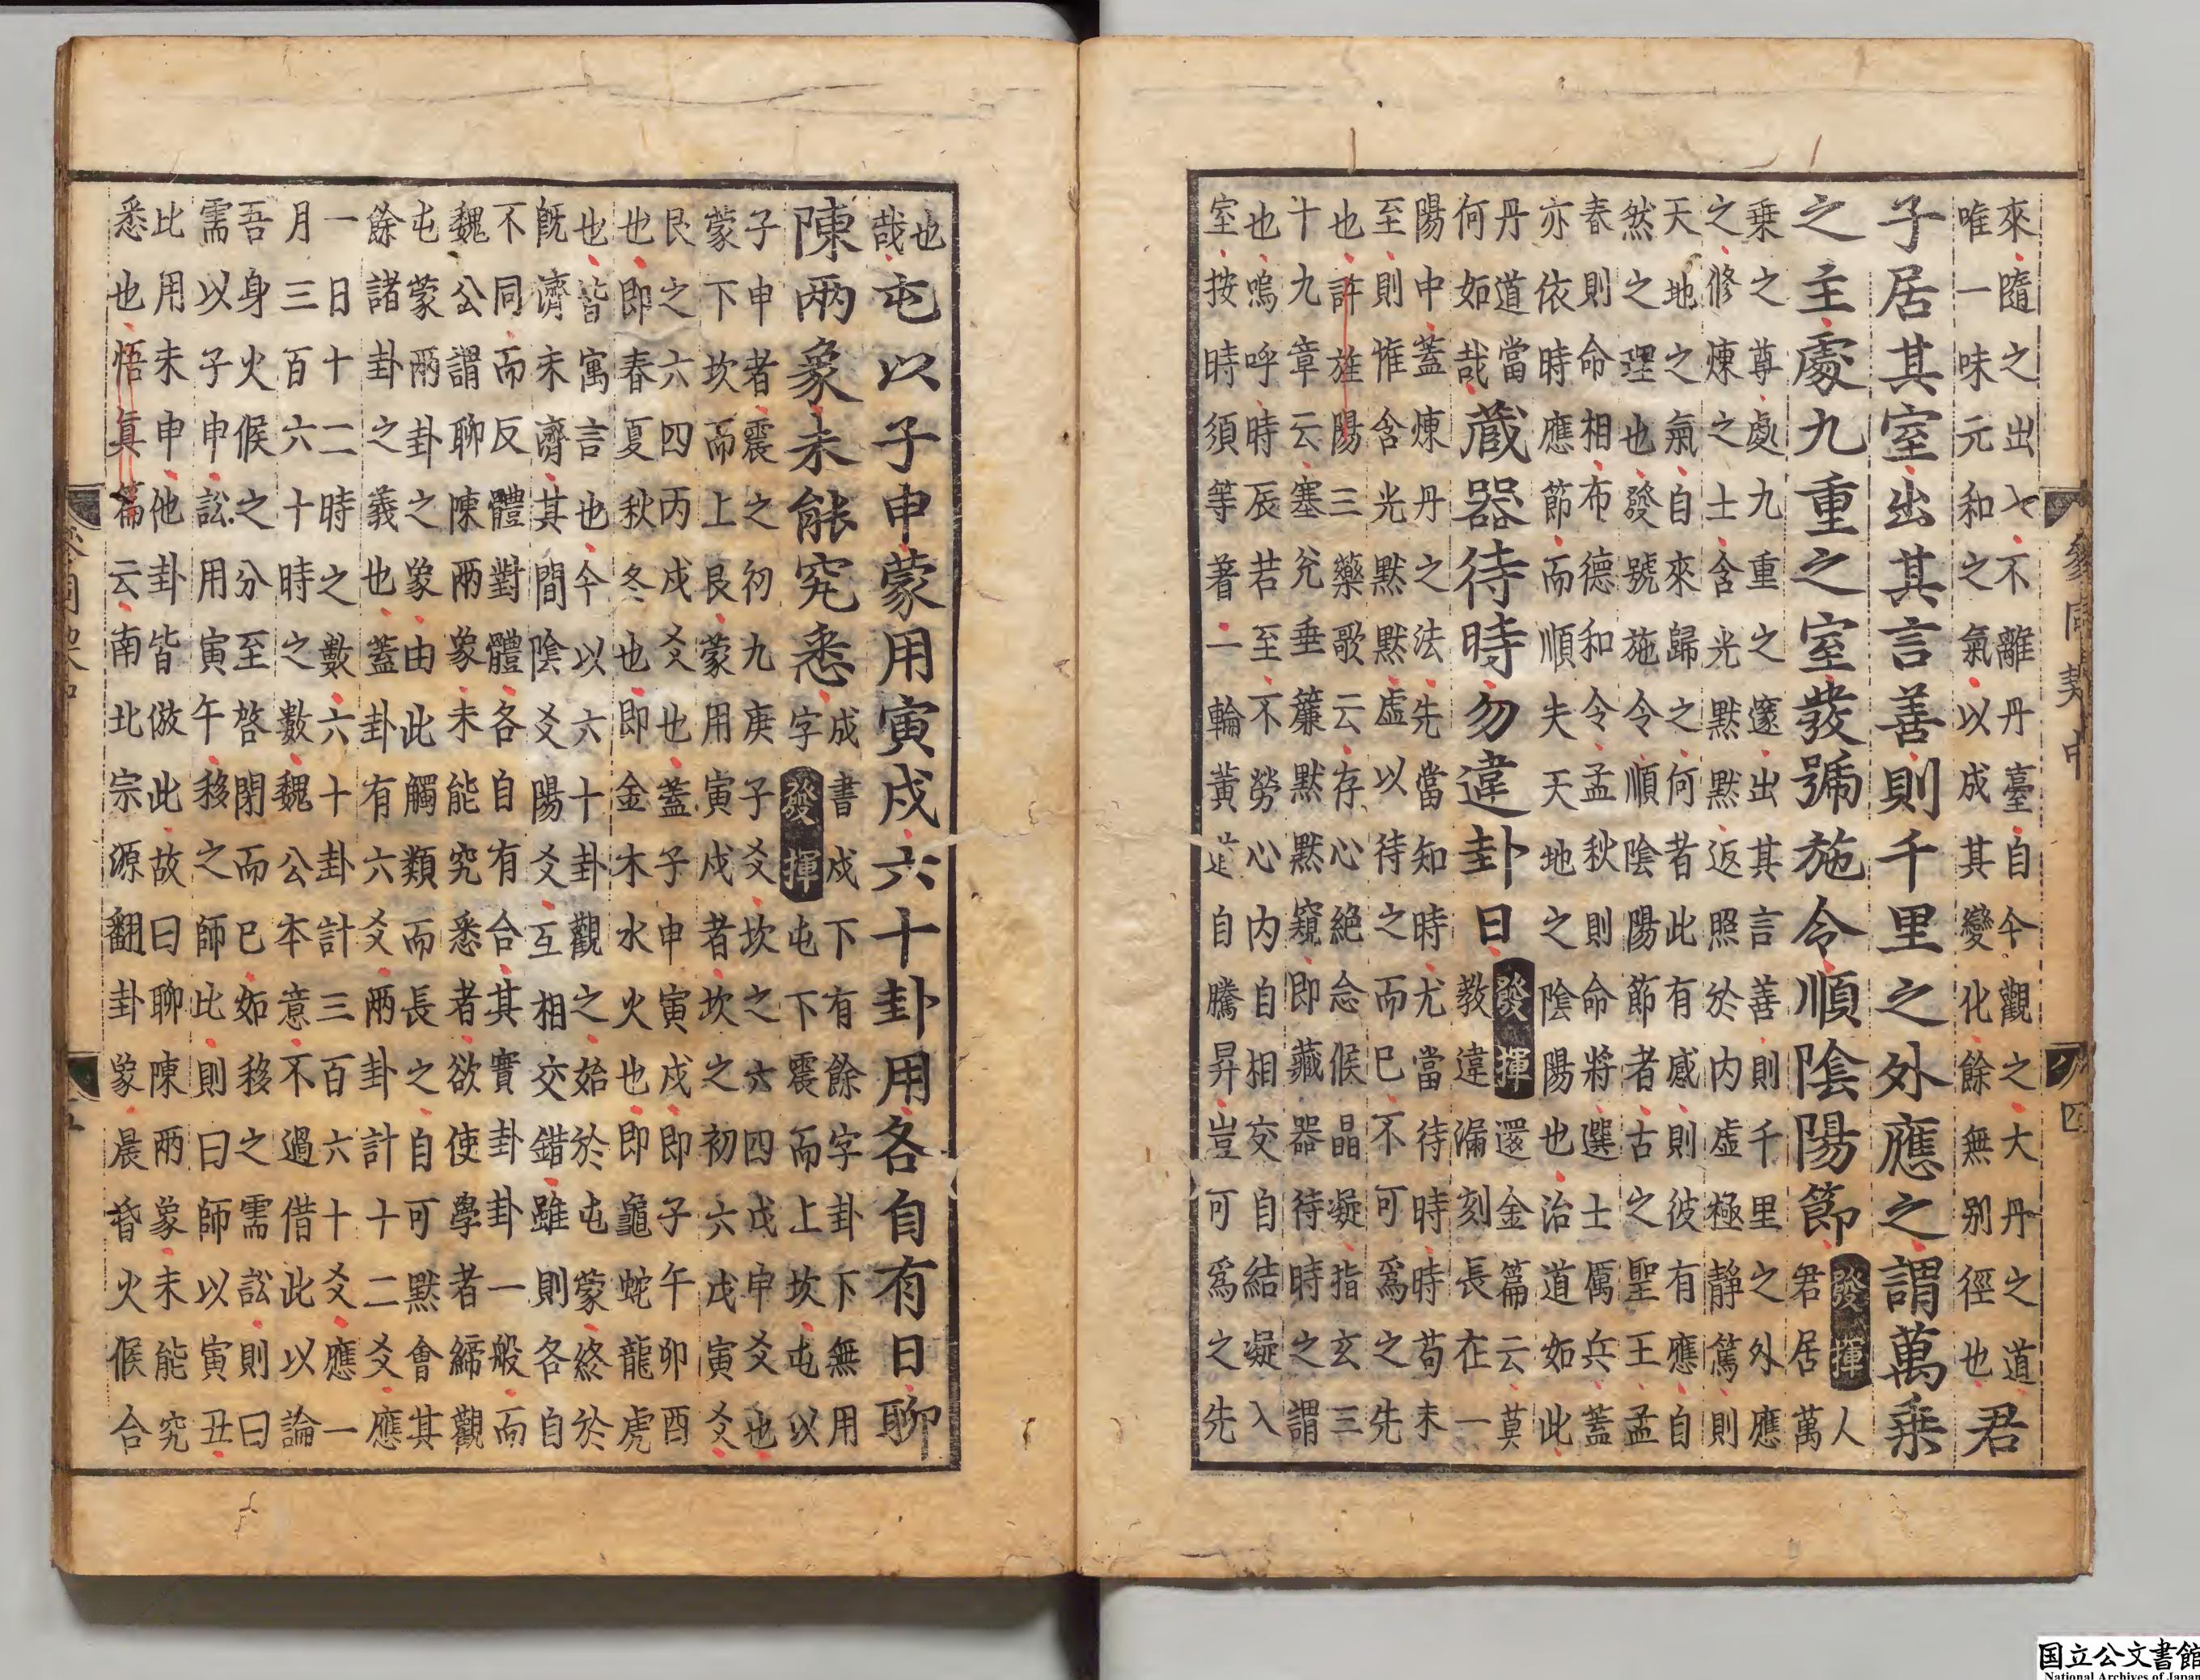 參同契中 四
來隨之出入不離丹臺自今觀之大丹之道
唯一味元和之氣以成其變化餘無別徑也
君
子居其室出其言善則千里之外應之謂萬乗
之主處九重之室發號施令順陰陽節
發揮人
君居萬
乗之尊處九重之邃出其言善則千里之外應
之修煉之士含光黙黙返照於内虛極静篤則
天地之氣自來歸之何者此有感則彼有應自
然之理也發號施令順陰陽節者古之聖王孟
春則命相布德和令孟秋則命將選士厲兵蓋
亦依時應節而順夫天地之陰陽也治道如此
丹道當
何如哉
藏器待時勿違卦日
發揮還金篇云莫
教違漏刻長在一
陽中蓋煉丹之法先當知時尤當待時時苟未
至則惟含光黙黙虛以待之而已不可爲之先
也許旌陽三藥歌云存心絶念候晶凝指玄三
十九章云塞兊垂簾黙黙窺即藏器待時之謂
也嗚呼時辰若至不勞心内自相交自結凝入
室按時須等着一輪黄自騰昇豈可爲之先
也
哉
屯以子申蒙用寅戍六十卦用各自有日聊
陳兩象未能究悉
成書戍下有餘字卦下無用
字發揮屯下震而上坎屯以
子申者震之初九庚子爻坎之六四戊申爻也
蒙下坎而上艮蒙用寅戍者坎之初六戊寅爻
艮之六四丙戍爻也蓋子申寅戍即子午卯酉
也即春夏秋冬也即金木水火也即龜蛇龍虎
也皆寓言也今以六十卦觀之始於屯蒙終於
既濟未濟其間陰爻陽爻互相交錯雖則各自
不同而反體對體各自有合其實卦卦一般而
魏公謂聊陳兩象未能究悉者欲使學者締觀
屯蒙兩卦之象由此觸類而長之自可黙會其
餘諸卦之義也蓋卦有六爻兩卦計十二爻應
一日十二時之數六十卦計三百六十爻應一
月三百六十時之數魏公本意不過借此以論
吾身火候之分至啓閉而已如移之需訟則曰
需以子申訟用寅午移之師比則曰師以寅丑
比用未申他卦皆倣此故曰聊陳兩象未能究
悉也悟真篇云南北宗源翻卦象晨昏火候合
国立公文書館
National Archives of Japan